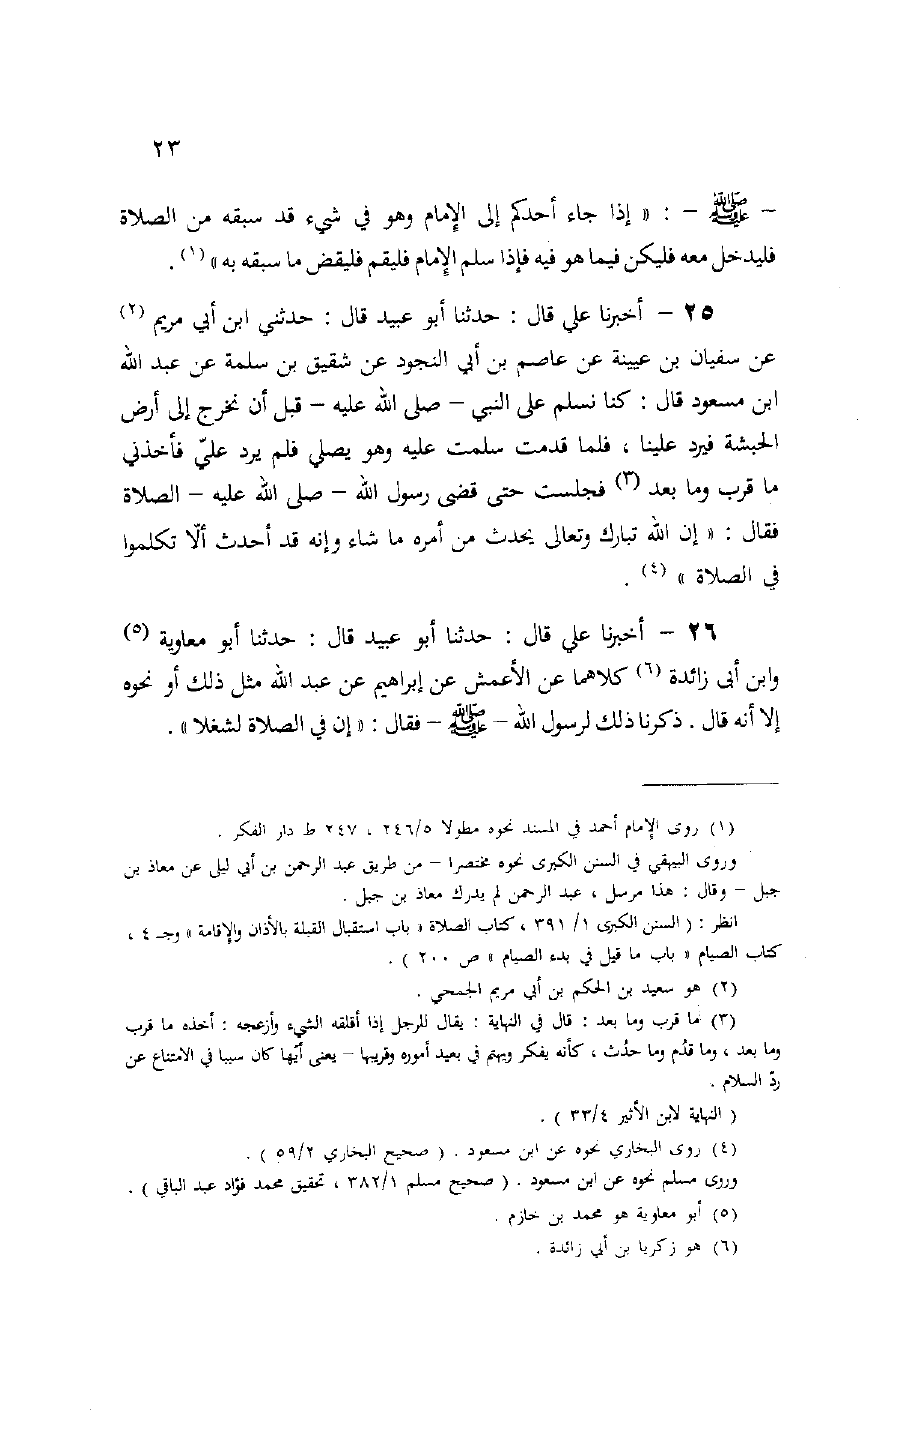 ٢٣
– ﷺ – : « إذا جاء أحدكم إلى الإمام وهو في شيء قد سبقه من الصلاة
فليدخل معه فليكن فيما هو فيه فإذا سلم الإمام فليقم فليقض ما سبقه به » (١) .
٢٥ – أخبرنا علي قال : حدثنا أبو عبيد قال : حدثني ابن أبي مريم (٢)
عن سفيان بن عيينة عن عاصم بن أبي النجود عن شقيق بن سلمة عن عبد الله
ابن مسعود قال : كنا نسلم على النبي – صلى الله عليه – قبل أن نخرج إلى أرض
الحبشة فيرد علينا ، فلما قدمت سلمت عليه وهو يصلي فلم يرد عليّ فأخذني
ما قرب وما بعد (٣) فجلست حتى قضى رسول الله – صلى الله عليه – الصلاة
فقال : « إن الله تبارك وتعالى يحدث من أمره ما شاء وإنه قد أحدث ألّا تكلموا
في الصلاة » (٤) .
٢٦ – أخبرنا علي قال : حدثنا أبو عبيد قال : حدثنا أبو معاوية (٥)
وابن أبى زائدة (٦) كلاهما عن الأعمش عن إبراهيم عن عبد الله مثل ذلك أو نحوه
إلا أنه قال . ذكرنا ذلك لرسول الله – ﷺ – فقال : « إن في الصلاة لشغلا » .
(١) روى الإمام أحمد في المسند نحوه مطولا ٢٤٦/٥ ، ٢٤٧ ط دار الفكر .
وروى البيهقي في السنن الكبرى نحوه مختصرا – من طريق عبد الرحمن بن أبي ليلى عن معاذ بن
جبل – وقال : هذا مرسل ، عبد الرحمن لم يدرك معاذ بن جبل .
انظر : ( السنن الكبرى ٣٩١/١ ، كتاب الصلاة « باب استقبال القبلة بالأذان والإقامة » وجـ ٤ ،
كتاب الصيام « باب ما قيل في بدء الصيام » ص ٢٠٠ ) .
(٢) هو سعيد بن الحكم بن أبي مريم الجمحي .
(٣) ما قرب وما بعد : قال في النهاية : يقال للرجل إذا أقلقه الشيء وأزعجه : أخذه ما قرب
وما بعد ، وما قدُم وما حدُث ، كأنه يفكر ويهتم في بعيد أموره وقريبها – يعنى أيّها كان سببا في الامتناع عن
ردّ السلام .
( النهاية لابن الأثير ٣٣/٤ ) .
(٤) روى البخاري نحوه عن ابن مسعود . ( صحيح البخاري ٥٩/٢ ) .
وروى مسلم نحوه عن ابن مسعود . ( صحيح مسلم ٣٨٢/١ ، تحقيق محمد فؤاد عبد الباقي ) .
(٥) أبو معاوية هو محمد بن خازم .
(٦) هو زكريا بن أبي زائدة .